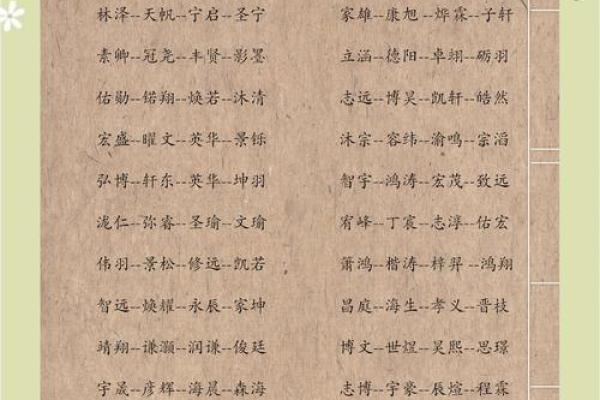 林泽--天帆--宁启--圣宁
家雄--康旭--烨霖--子轩
素卿--冠尧--丰贤--影墨
立涵--德阳--卓翊--砺羽
佑勋--锘翔--焕若--沐清
志远--博昊--凯轩--皓然
宏盛--曜文--英华--景铄
沐宗--容纬--渝鸣--宗滔
弘博--轩东--英华--坤羽
智宇--鸿涛--宏茂--致远
泷仁--弥睿--圣瑜--文瑜
宥峰--丁宸--志淳--佑宏
伟羽--景松--修远--凯若
萧鸿--楷涛--梓羿--鸿翔
智远--焕耀--永辰--家坤
昌庭--海生--孝义--晋枝
靖翔--谦灏--润谦--俊廷
博文--世煜--昊熙--思璟
宇晟--彦辉--海晨--森海
志博--宇豪--辰煊--程霖